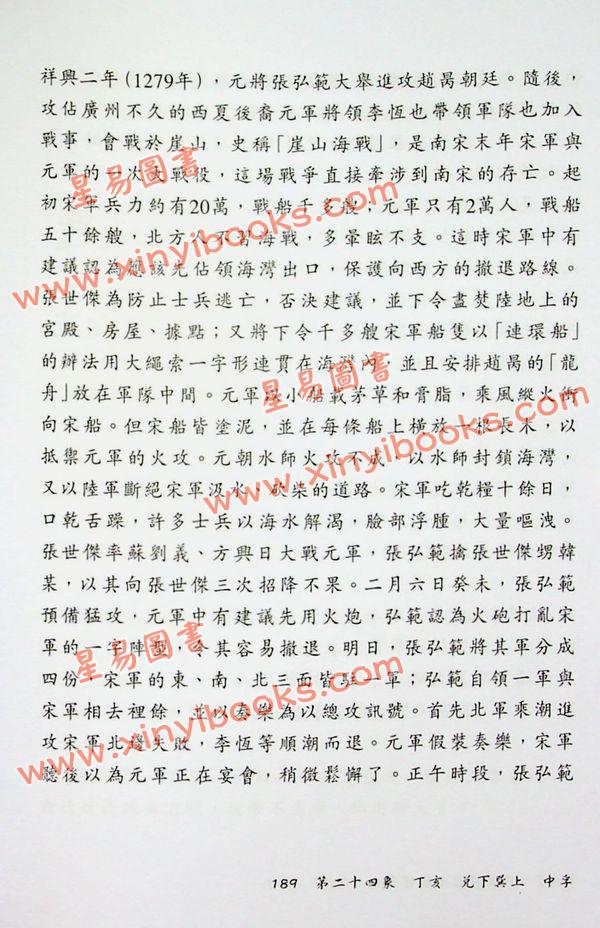 祥興二年(1279年)，元將張弘範大舉進攻趙昺朝廷。隨後，
攻佔廣州不久的西夏後裔元軍將領李恆也帶領軍隊也加入
戰事，會戰於崖山，史稱「崖山海戰」，是南宋末年宋軍與
元軍的一次大戰役，這場戰爭直接牽涉到南宋的存亡。起
初宋軍兵力約有20萬，戰船千多艘；元軍只有2萬人，戰船
五十餘艘，北方人不習海戰，多暈眩不支。這時宋軍中有
建議認為應該先佔領海灣出口，保護向西方的撤退路線。
張世傑為防止士兵逃亡，否決建議，並下令盡焚陸地上的
宮殿、房屋、據點；又將下令千多艘宋軍船隻以「連環船」
的辦法用大繩索一字形連貫在海灣內，並且安排趙昺的「龍
舟」放在軍隊中間。元軍以小船載茅草和膏脂，乘風縱火衝
向宋船。但宋船皆塗泥，並在每條船上橫放一根長木，以
抵禦元軍的火攻。元朝水師火攻不成，以水師封鎖海灣，
又以陸軍斷絕宋軍汲水、砍柴的道路。宋軍吃乾糧十餘日，
口乾舌躁，許多士兵以海水解渴，臉部浮腫，大量嘔洩。
張世傑率蘇劉義、方興日大戰元軍，張弘範擒張世傑甥韓
某，以其向張世傑三次招降不果。二月六日癸未，張弘範
預備猛攻，元軍中有建議先用火炮，弘範認為火砲打亂宋
軍的一字陣型，令其容易撤退。明日，張弘範將其軍分成
四份，宋軍的東、南、北三面皆駐一軍；弘範自領一軍與
宋軍相去裡餘，並以奏樂為以總攻訊號。首先北軍乘潮進
攻宋軍北邊失敗，李恆等順潮而退。元軍假裝奏樂，宋軍
聽後以為元軍正在宴會，稍微鬆懈了。正午時段，張弘範
189 第二十四象 丁亥 兌下巽上 中孚
星易圖書
www.xinyibooks.com
星易圖書
www.xinyibooks.com
星易圖書
www.xinyibooks.com